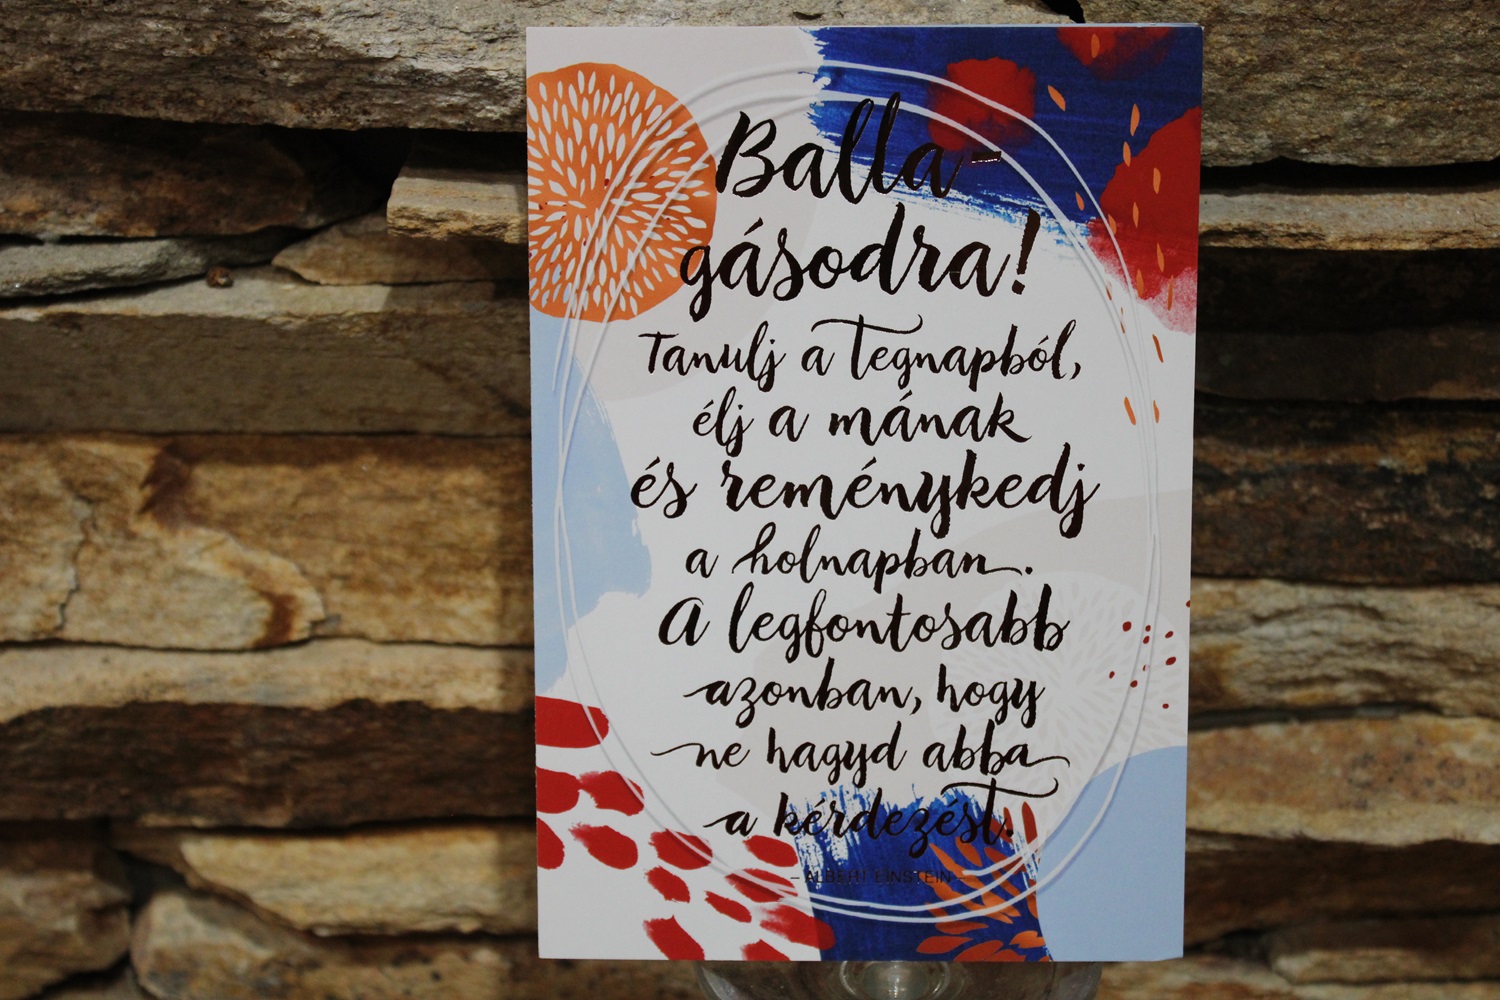 Balla-
gásodra!
Tanulj a tegnapból,
élj a mának
és reménykedj
a holnapban.
A legfontosabb
azonban, hogy
ne hagyd abba
a kérdezést.
- ALBERT EINSTEIN -